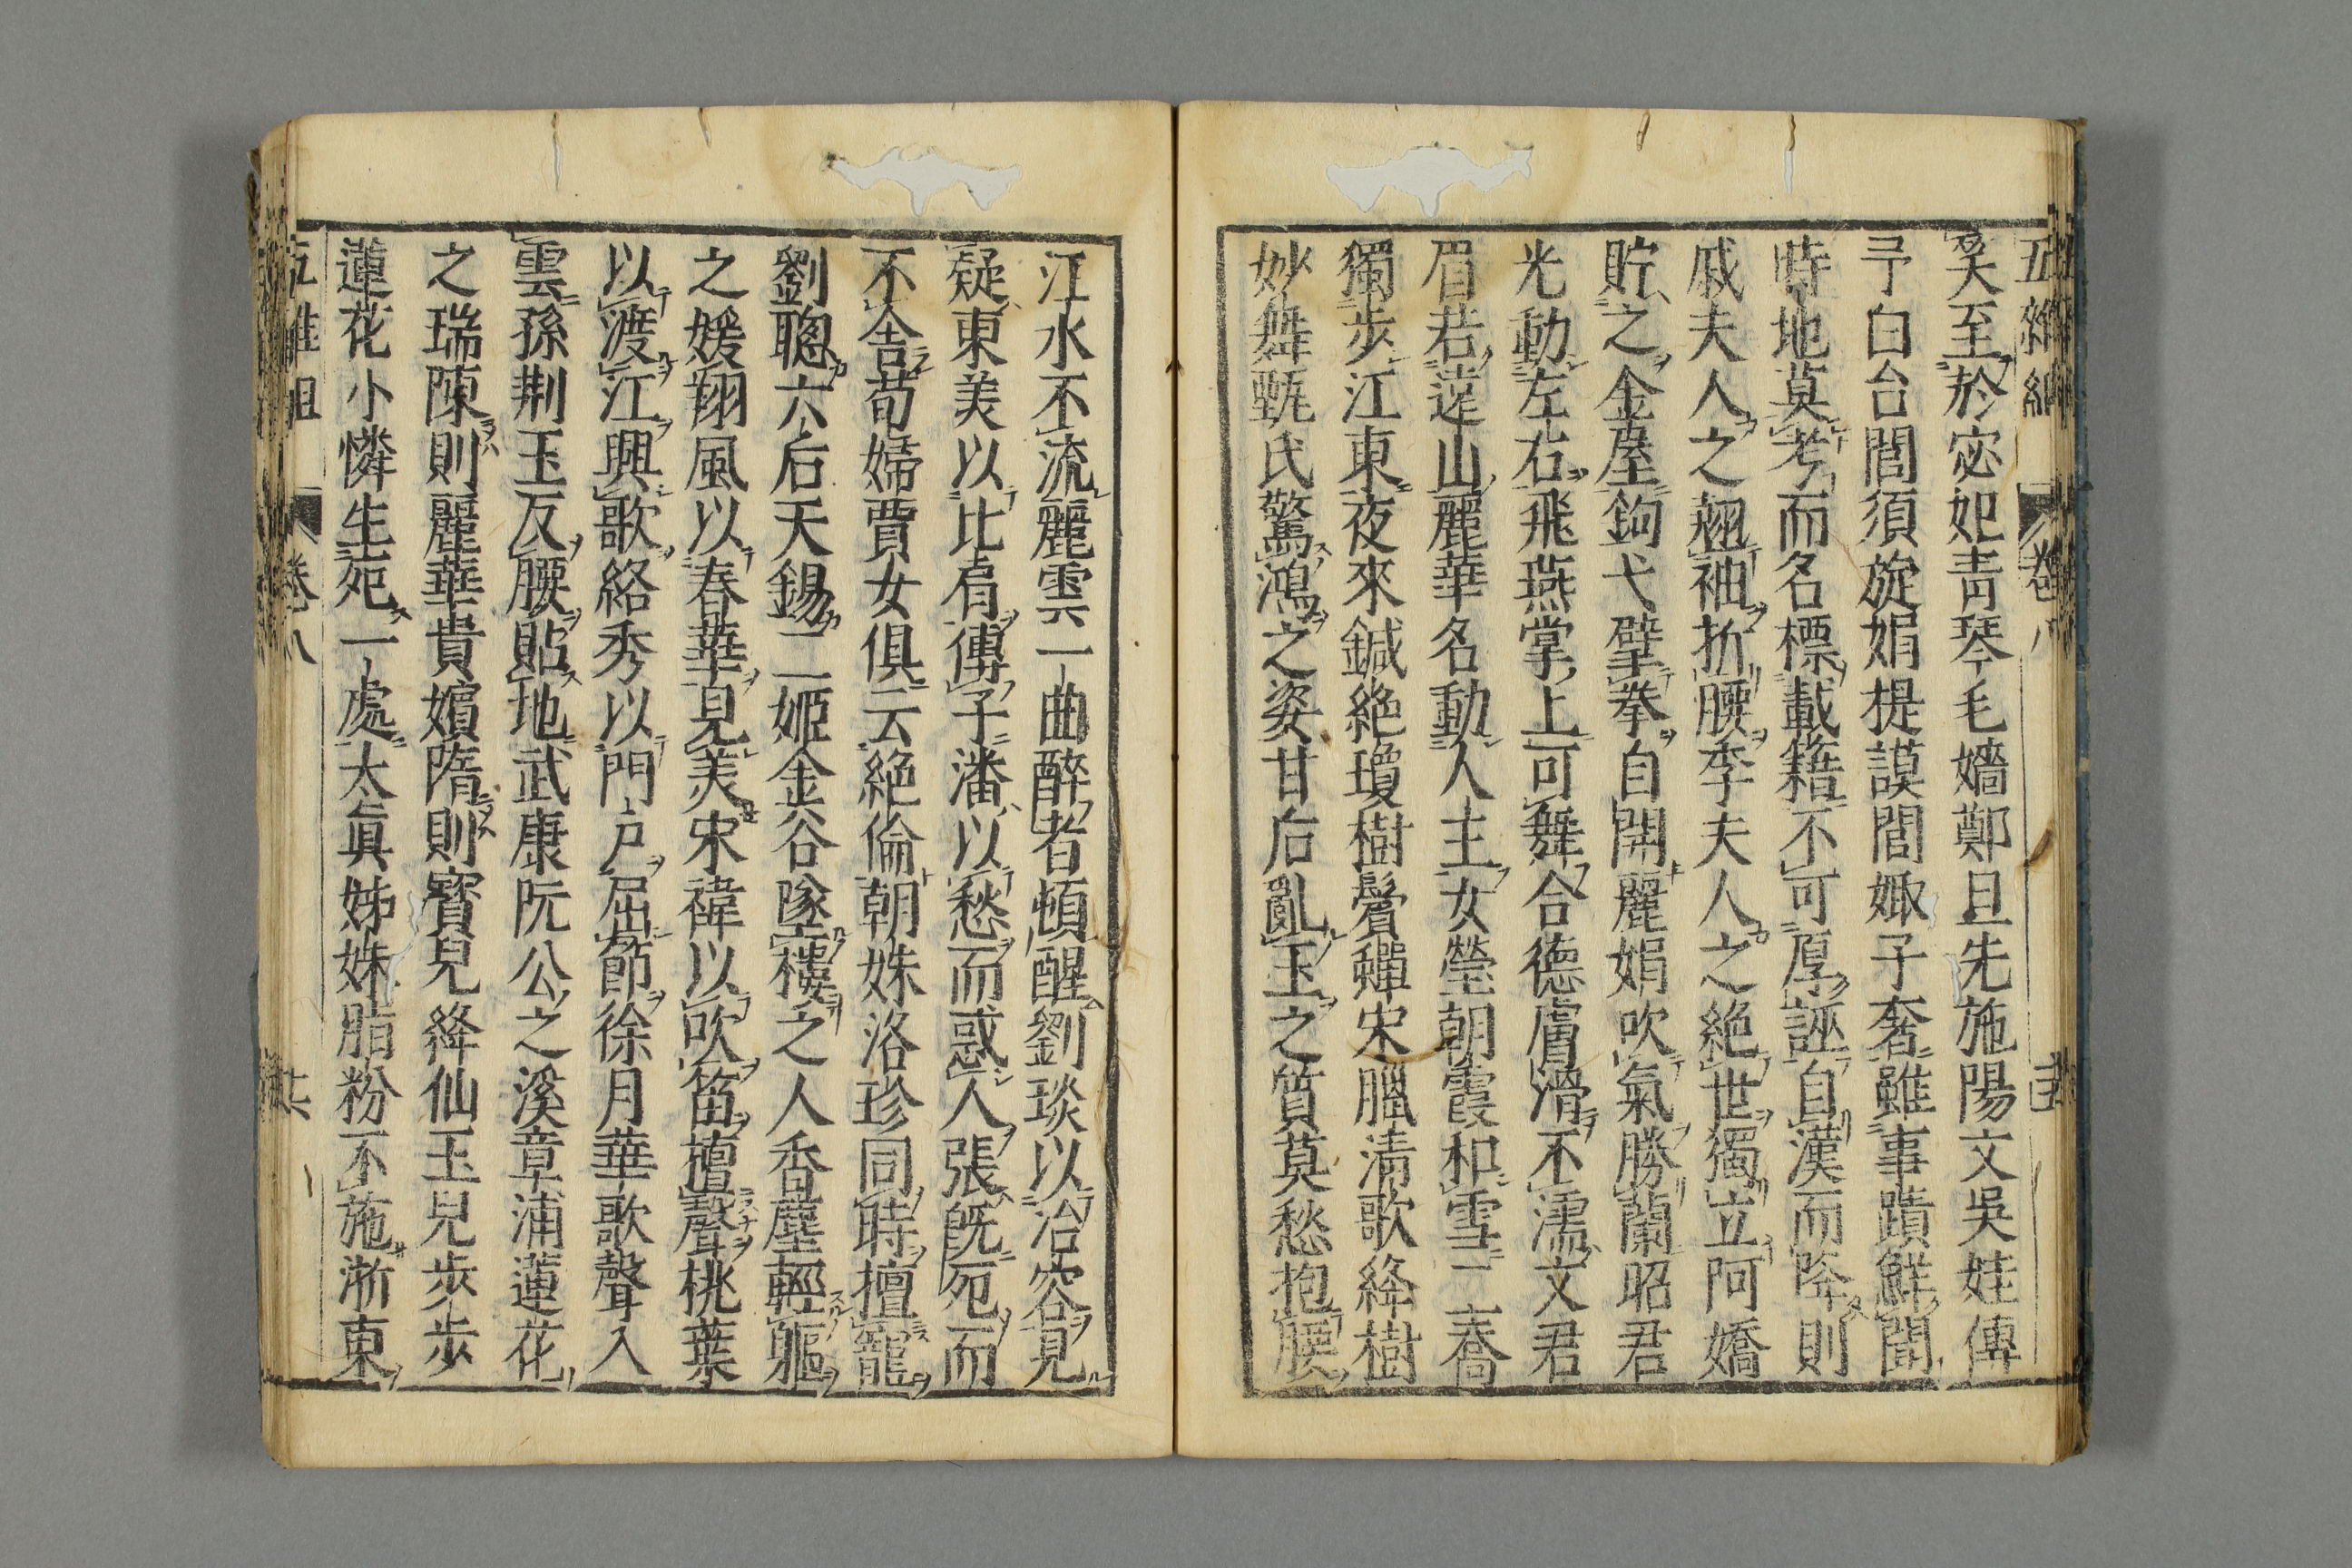 五雜組 卷八
矣至於宓妃靑琴毛嬙鄭旦先施陽文吳娃傅
予白台閭須旋娟提謨閭娵子奢雖事蹟鮮聞
時地莫考而名標載籍不可厚誣自漢而降則
戚夫人之翹袖折腰李夫人之絶世獨立阿嬌
貯之金屋鉤弋擘拳自開麗娟吹氣勝蘭昭君
光動左右飛燕掌上可舞合德膚滑不濡文君
眉若遠山麗華名動人主女瑩朝霞和雪二喬
獨步江東夜來鍼絶瓊樹鬢蟬宋臘淸歌絳樹
妙舞甄氏驚鴻之姿甘后亂玉之質莫愁抱腰
江水不流麗雲一曲醉者頓醒劉琰以冶容見
疑東美以比肩傳子潘以愁而惑人張旣死而
不舍荀婦賈女俱云絶倫朝姝洛珍同時擅寵
劉聰六后天錫二姬金谷墜樓之人香塵輕軀
之媛翔風以春華見羨宋褘以吹笛擅聲桃葉
以渡江興歌絡秀以門戸屈節徐月華歌聲入
雲孫荆玉反腰貼地武康阮公之溪章浦蓮花
之瑞陳則麗華貴嬪隋則寳兒絳仙玉兒步步
蓮花小憐生死一處太眞姊姝脂粉不施浙東
五雜組 卷八 六